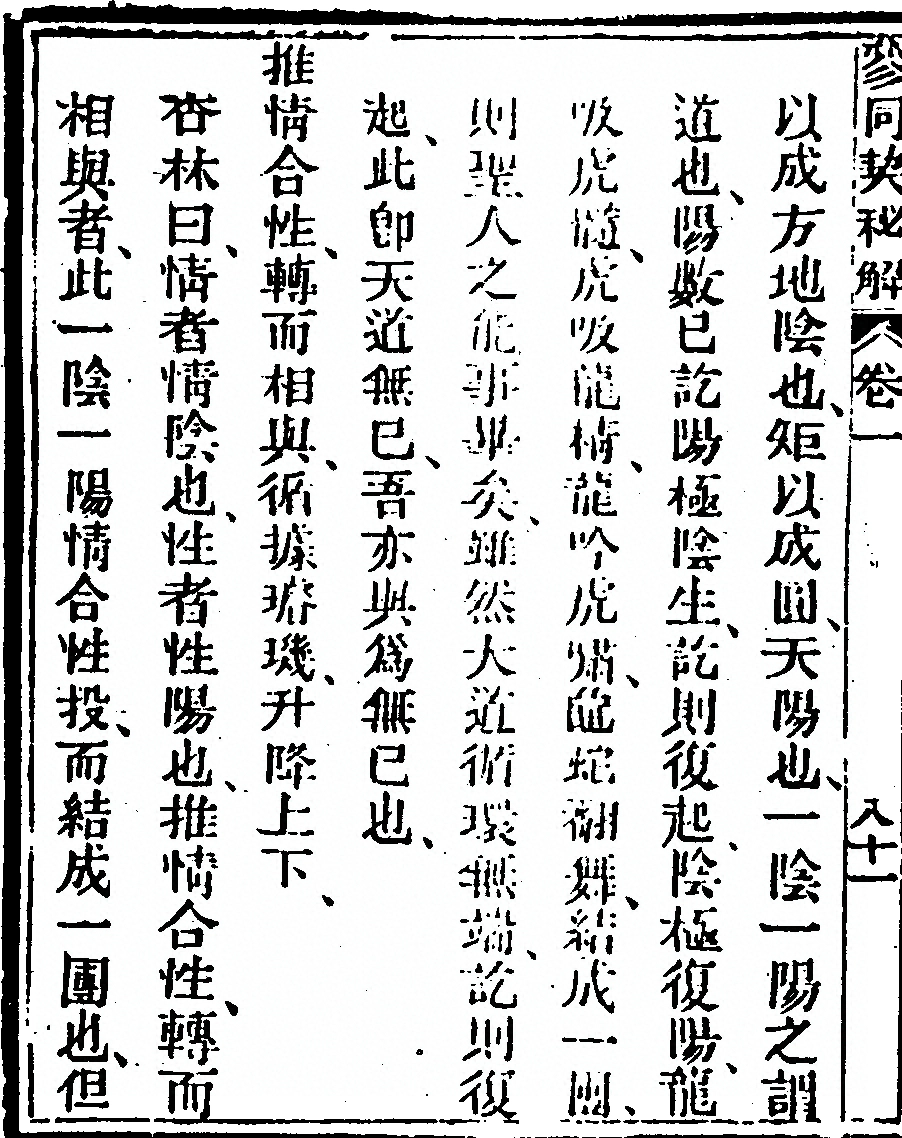 參同契秘解 卷一 八十一
以成方地陰也、矩以成圓、天陽也、一陰一陽之謂
道也、陽數已訖陽極陰生、訖則復起、陰極復陽、龍
吸虎髓、虎吸龍精、龍吟虎嘯、龍蛇翻舞、結成一團、
則聖人之能事畢矣、雖然大道循環無端、訖則復
起、此卽天道無已、吾亦與爲無已也、
推情合性、轉而相與、循據璿璣、升降上下、
杏林曰、情者情陰也、性者性陽也、推情合性、轉而
相與者、此一陰一陽情合性投、而結成一團也、但